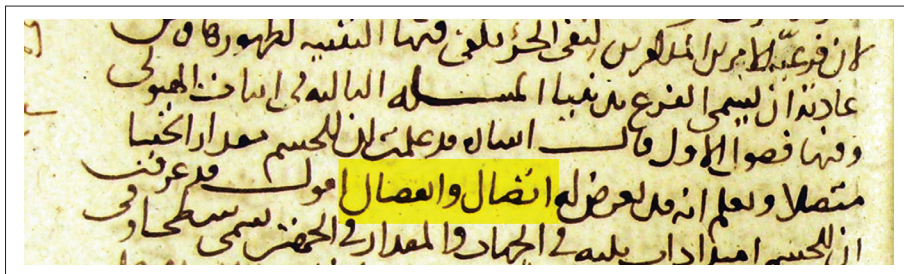 لان فرعية الامرين المذكورين لنفى الجزء يكفى فيها التنبيه لظهورها ومن
عادته ان يسمى الفرع تذنيبا المسئله الثالثه فى اثبات الهيولى
وفيها فصول الاول قال اشاره قد علمت ان للجسم مقدارا ثخينا
متصلا وتعلم انه قد يعرض له اتصال وانفصال اقول قد عرفت
ان للجسم امتدادات ثلثه فى الجهات والمقدار فى يسمى سطحا و فى